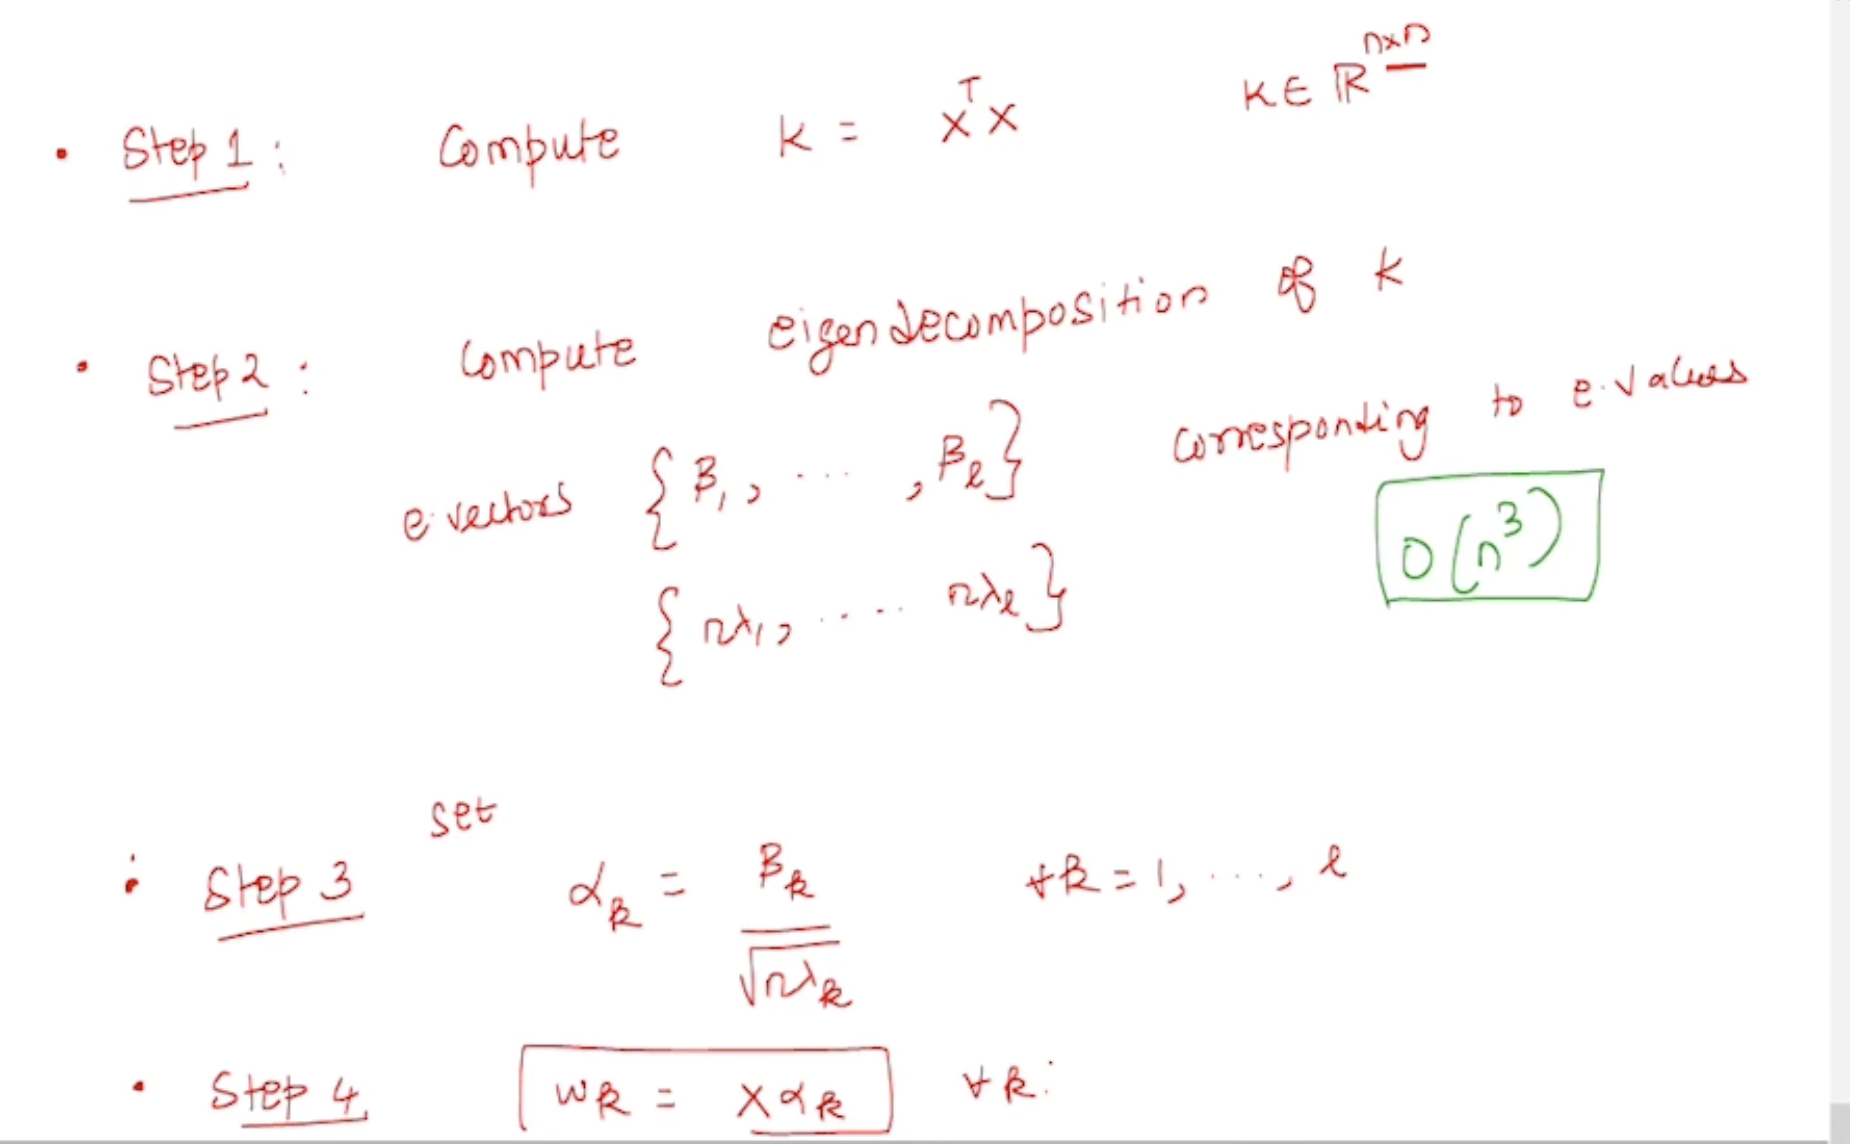 • Step 1 : Compute K = XᵀX K ∈ ℝⁿˣⁿ
• Step 2 : Compute eigendecomposition of K
e.vectors {β₁, ..... , βₗ} corresponding to e.values
{nλ₁, ..... nλₗ} O(n³)
set
• Step 3 αₖ = βₖ / √nλₖ ∀k = 1, ..., l
• Step 4 wₖ = Xαₖ ∀k.